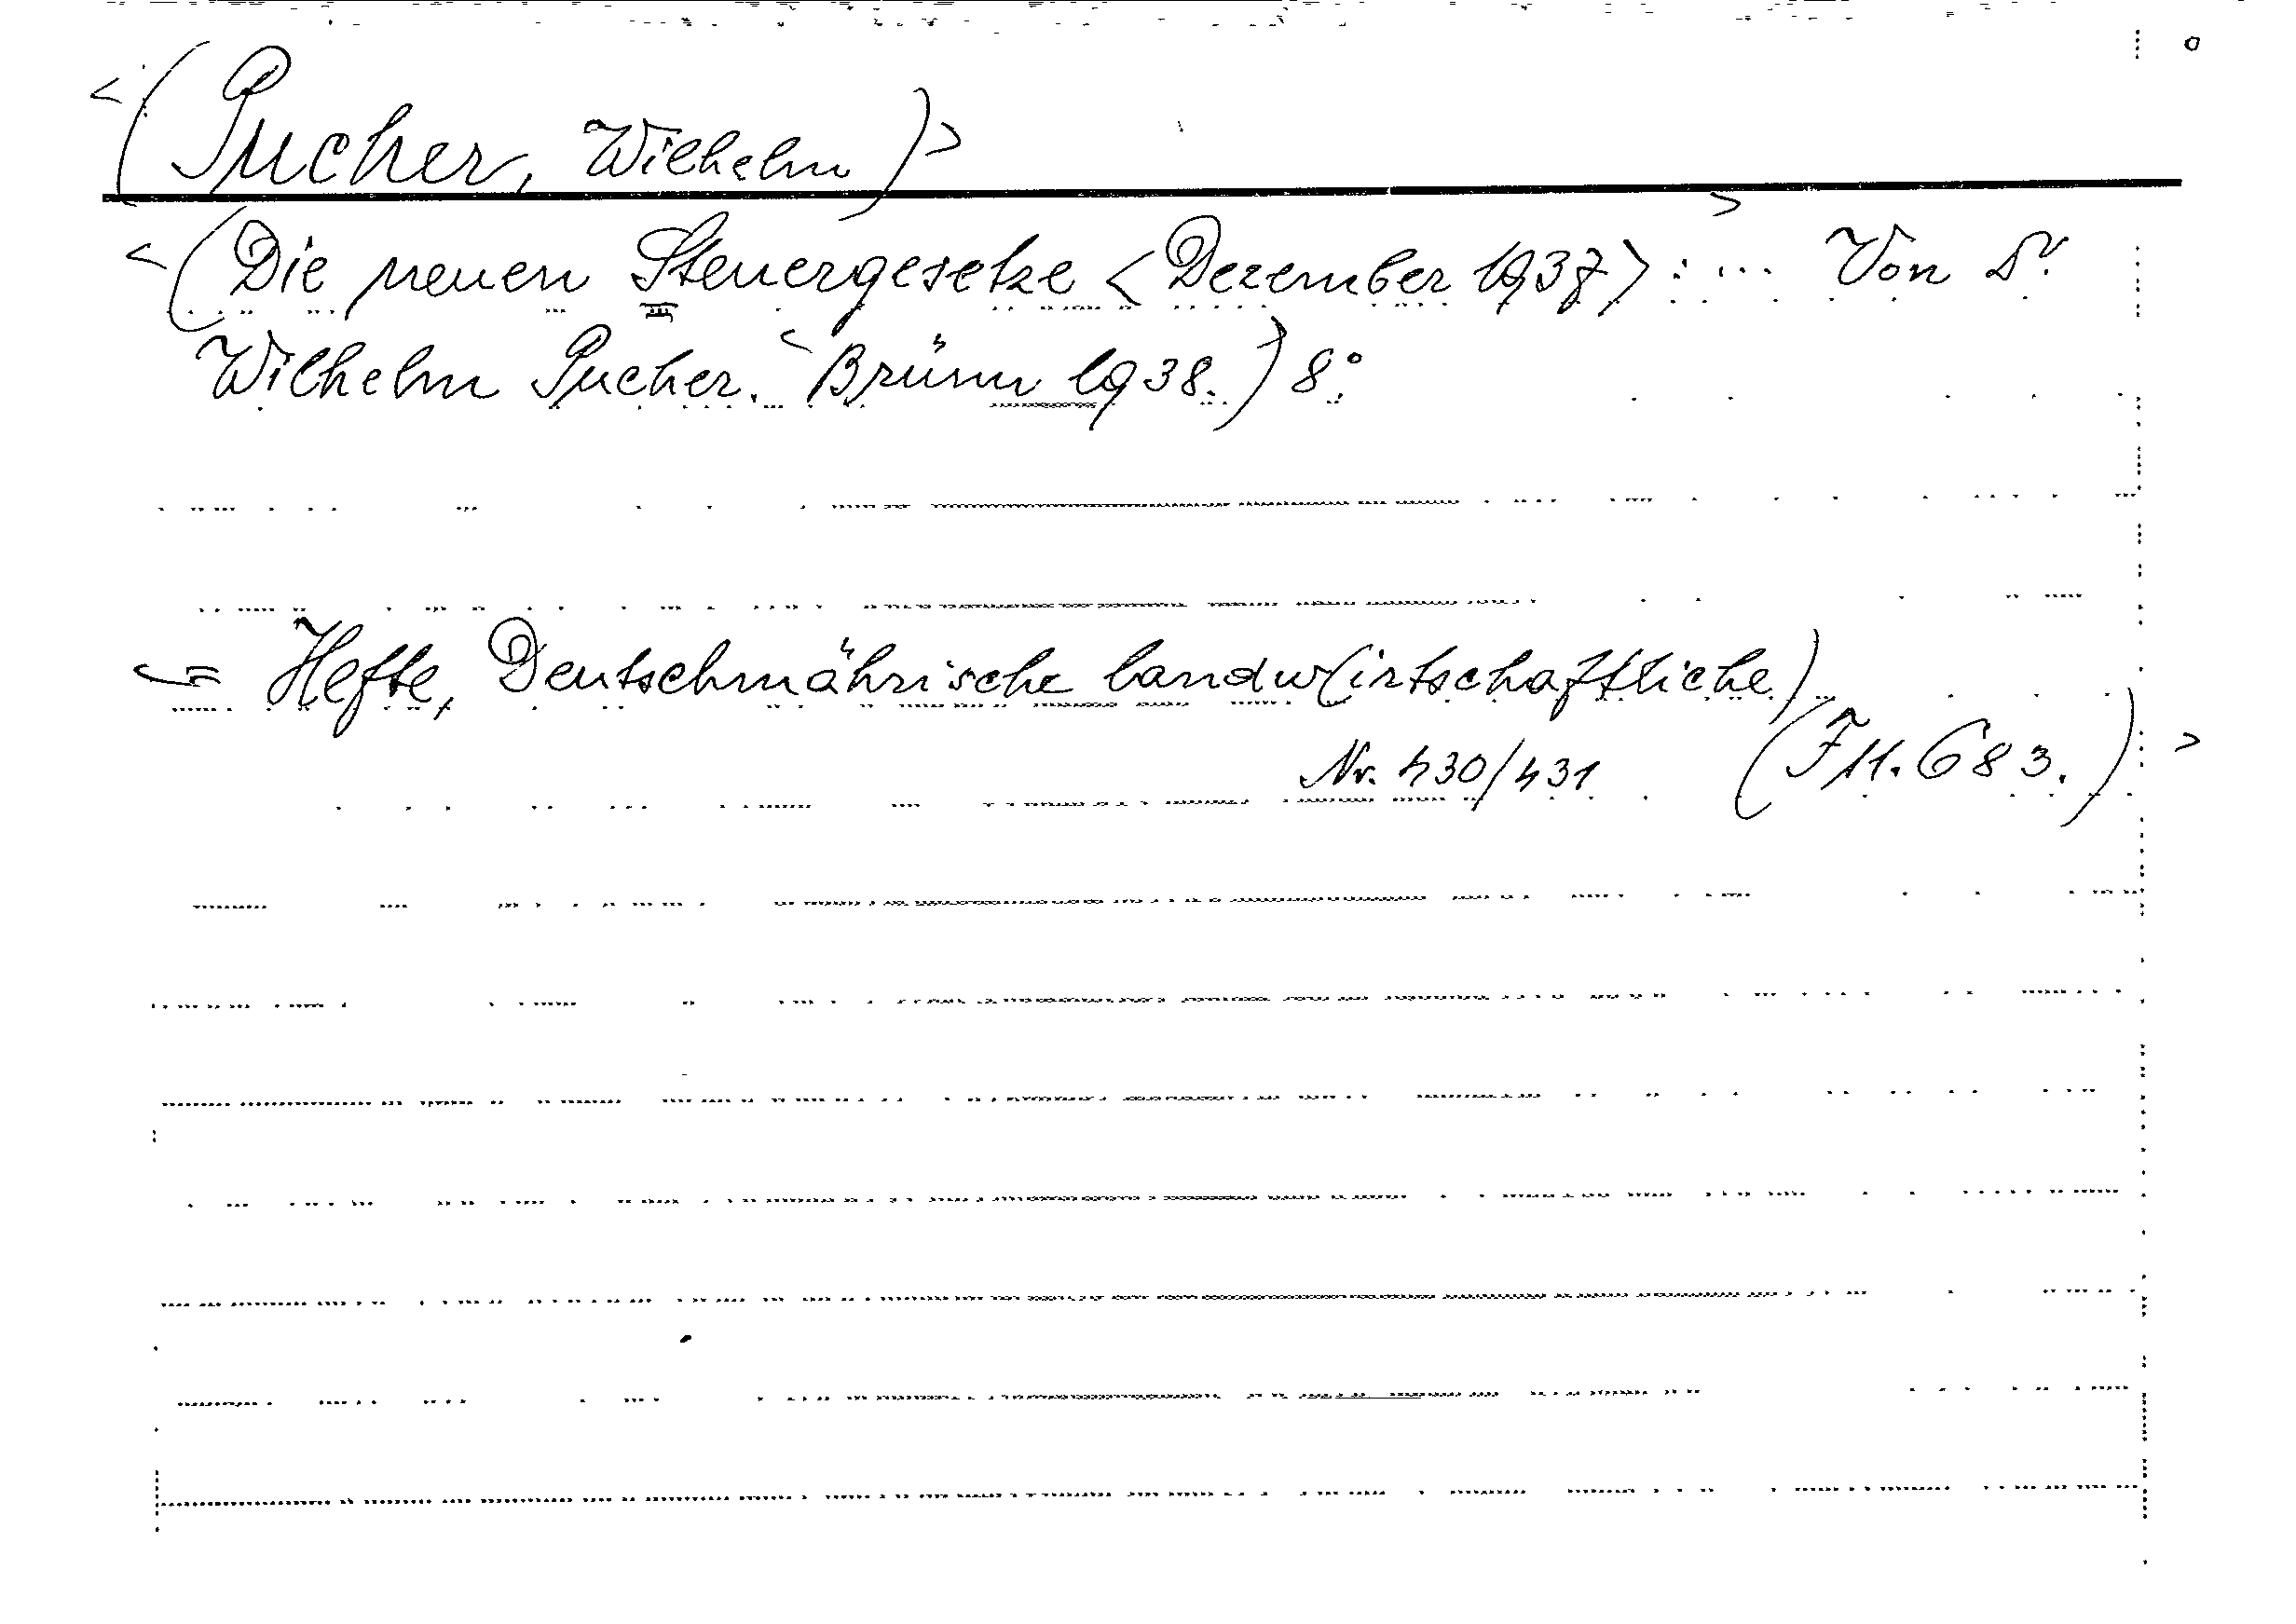 <(Pucher, Wilhelm)>
<(Die neuen Steuergesetze <Dezember 1937>: ...> Von Dr.
Wilhelm Pucher. <Brünn 1938.) 8°.
<= Hefte, Deutschmährische landw(irtschaftliche)
Nr. 430/431 (711.683.)>